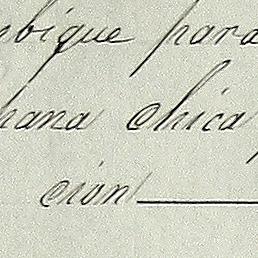 mbique para
hana chica
ción